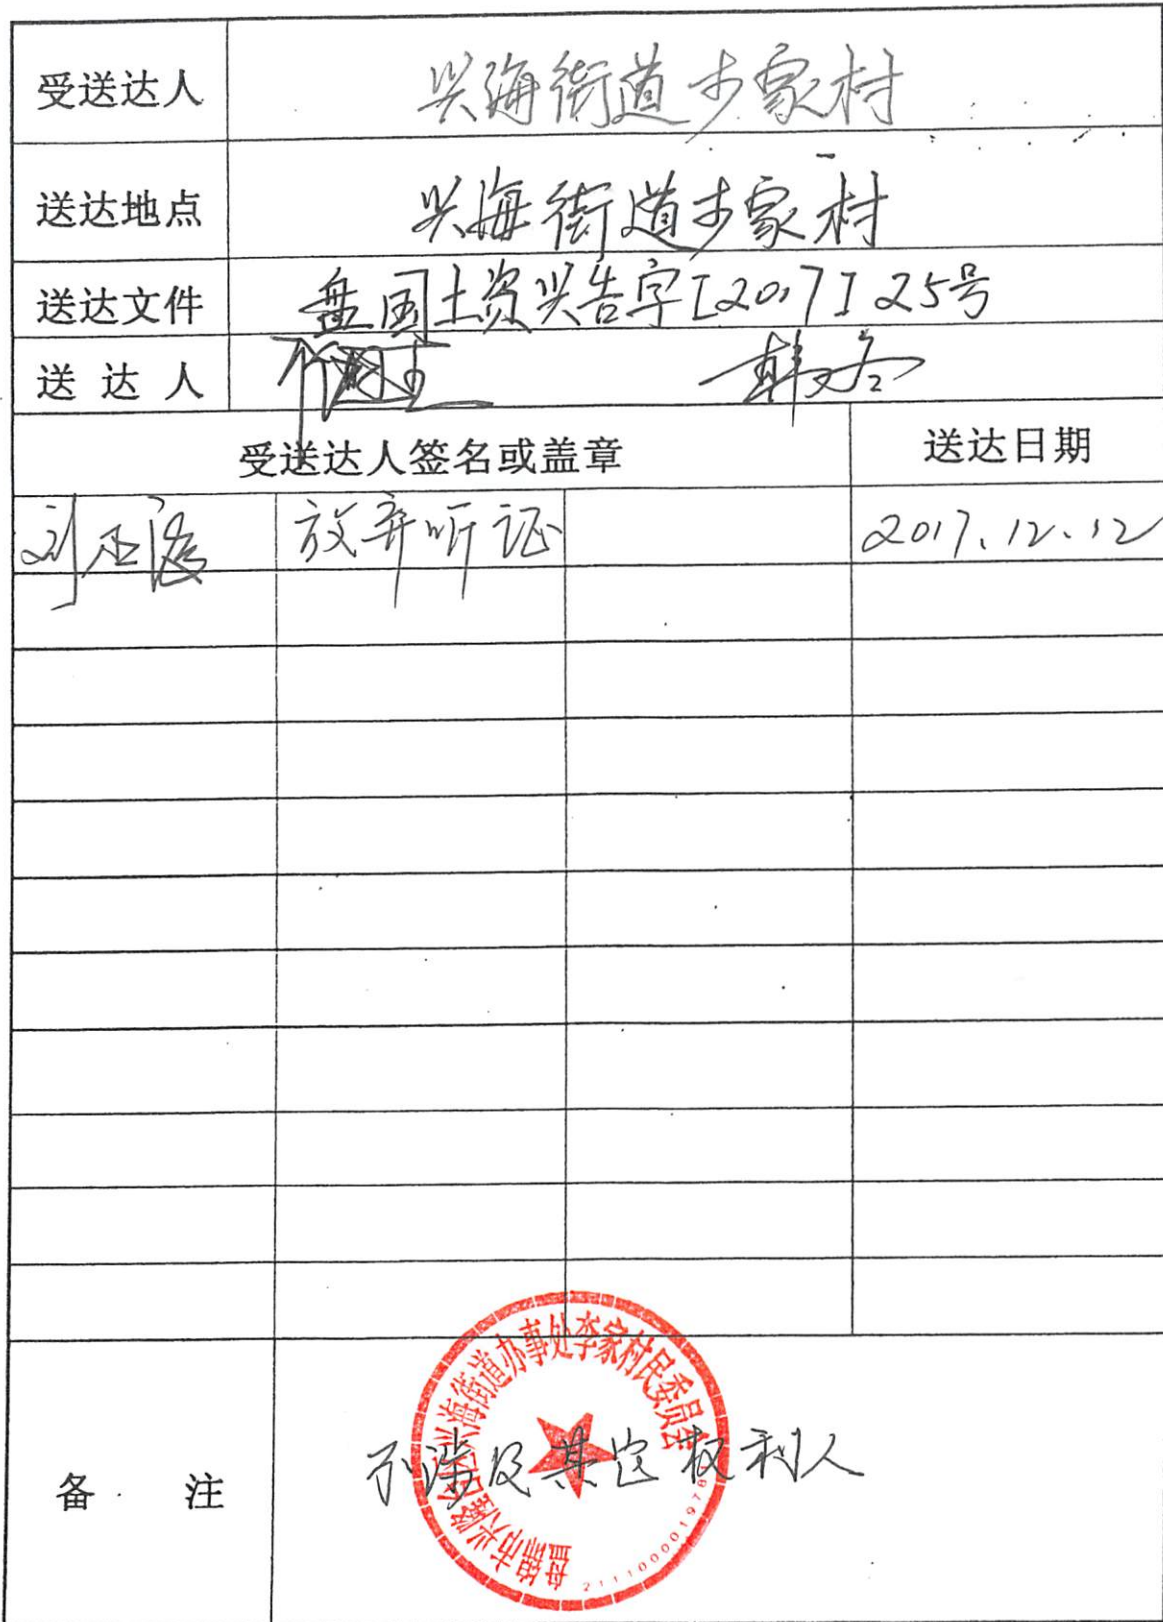 受送达人 兴海街道李家村
送达地点 兴海街道李家村
送达文件 盘国土资兴告字[2017]25号
送达人 韩冬
受送达人签名或盖章 送达日期
刘 放弃听证 2017.12.12
备注 不涉及其它权利人
盘锦市兴隆台区兴海街道办事处李家村民委员会